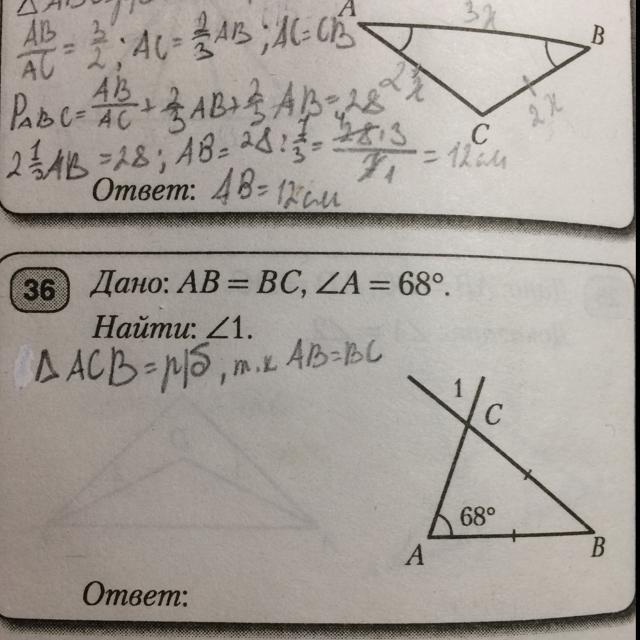 A 3x B
AB/AC = 3/2 ; AC = 2/3 AB ; AC = CB
2x
P ABC = AB/AC + 2/3 AB + 2/3 AB = 28
2x
C
2 1/3 AB = 28 ; AB = 28 : 1/3 = 28·3/7 1 = 12 см
Ответ: AB = 12 см
36 Дано: AB = BC, ∠A = 68°.
Найти: ∠1.
Δ ACB = р/б, т.к AB = BC
1
C
68°
A B
Ответ: